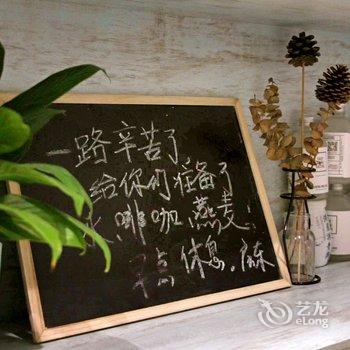 一路辛苦了
给你们准备了
水 咖啡 燕麦！
早点休息。
艺龙
eLong